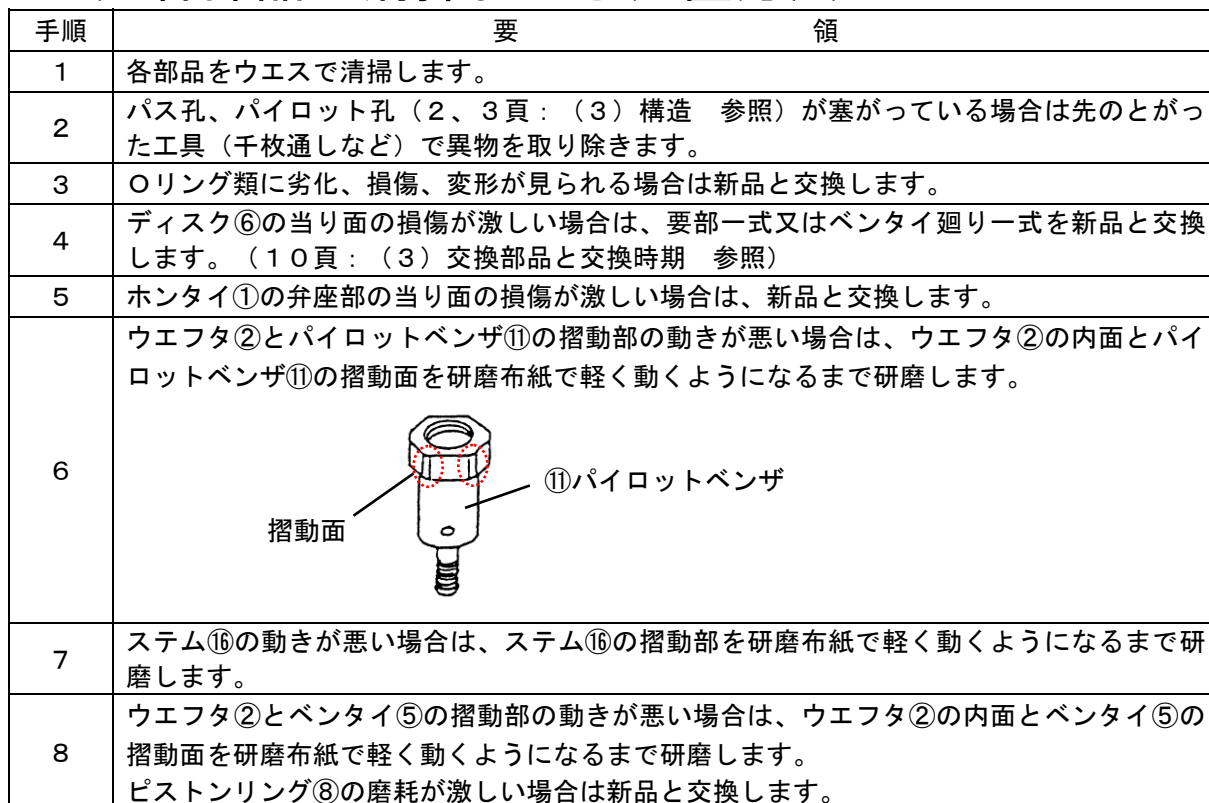 手順 要 領
1 各部品をウエスで清掃します。
2 パス孔、パイロット孔(2、3頁:(3)構造 参照)が塞がっている場合は先のとがっ
た工具(千枚通しなど)で異物を取り除きます。
3 Oリング類に劣化、損傷、変形が見られる場合は新品と交換します。
4 ディスク⑥の当り面の損傷が激しい場合は、要部一式又はベンタイ廻り一式を新品と交換
します。(10頁:(3)交換部品と交換時期 参照)
5 ホンタイ①の弁座部の当り面の損傷が激しい場合は、新品と交換します。
6 ウエフタ②とパイロットベンザ⑪の摺動部の動きが悪い場合は、ウエフタ②の内面とパイ
ロットベンザ⑪の摺動面を研磨布紙で軽く動くようになるまで研磨します。
⑪パイロットベンザ
摺動面
7 ステム⑯の動きが悪い場合は、ステム⑯の摺動部を研磨布紙で軽く動くようになるまで研
磨します。
8 ウエフタ②とベンタイ⑤の摺動部の動きが悪い場合は、ウエフタ②の内面とベンタイ⑤の
摺動面を研磨布紙で軽く動くようになるまで研磨します。
ピストンリング⑧の磨耗が激しい場合は新品と交換します。